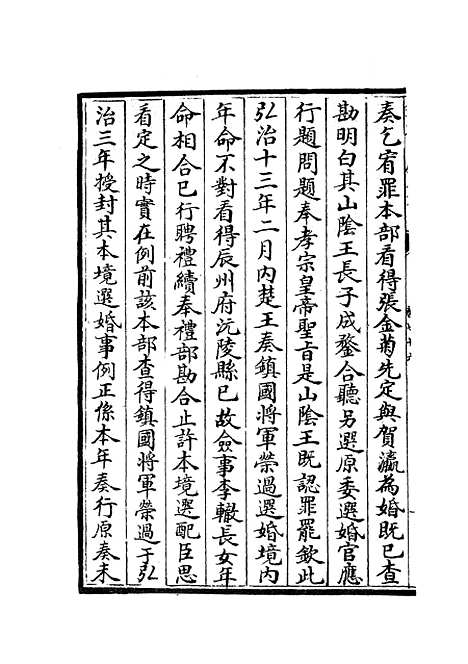 奏乞宥罪本部看得張金菊先定與賀瀛為婚既已查
勘明白其山陰王長子成鍪合聽另選原委選婚官應
行題問題奉孝宗皇帝聖旨是山陰王既認罪罷欽此
弘治十三年二月內楚王奏鎮國將軍榮過選婚境內
年命不對看得辰州府沅陵縣已故僉事李轍長女年
命相合已行聘禮續奉禮部勘合止許本境選配臣思
看定之時實在例前該本部查得鎮國將軍榮過于弘
治三年授封其本境選婚事例正係本年奏行原奏未